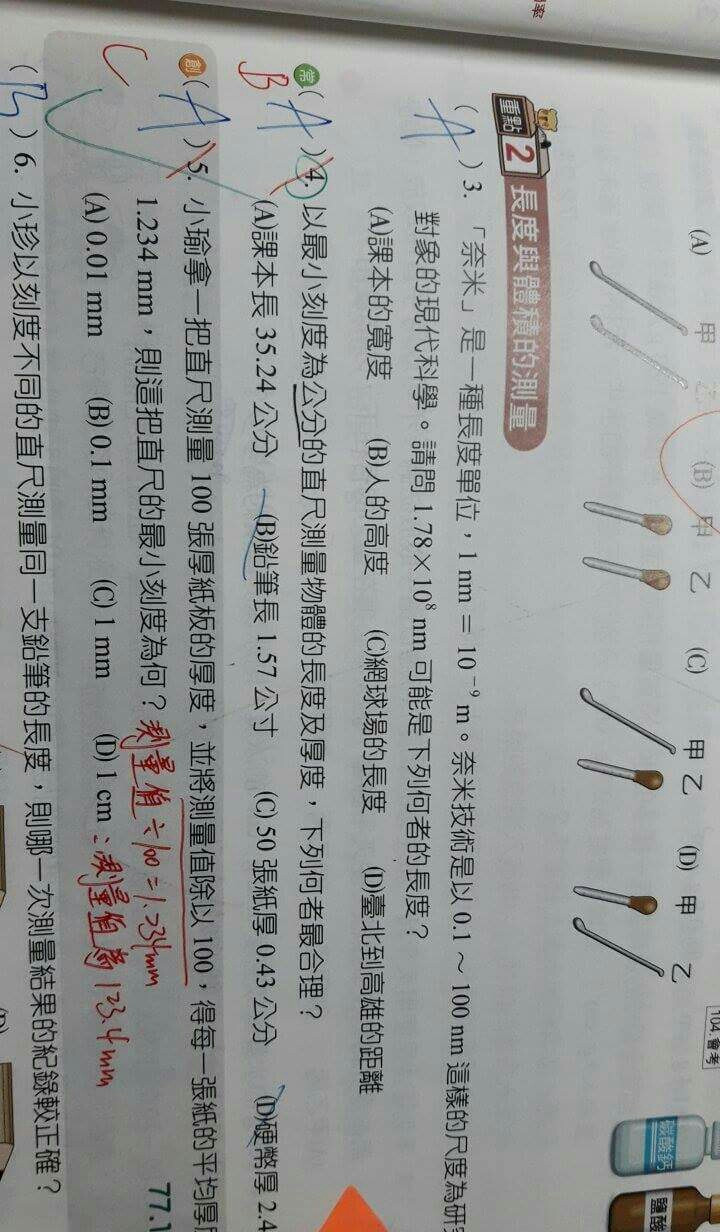 率
(A) 甲 乙 (B) 甲 乙 (C) 甲 乙 (D) 甲 乙
104.會考
碳酸鈣
鹽酸
重點 2 長度與體積的測量
(A) 3. 「奈米」是一種長度單位，1 nm = 10⁻⁹ m。奈米技術是以 0.1～100 nm 這樣的尺度為研
對象的現代科學。請問 1.78×10⁸ nm 可能是下列何者的長度？
(A)課本的寬度 (B)人的高度 (C)網球場的長度 (D)臺北到高雄的距離
常 B (A) 4. 以最小刻度為公分的直尺測量物體的長度及厚度，下列何者最合理？
(A)課本長 35.24 公分 (B)鉛筆長 1.57 公寸 (C) 50 張紙厚 0.43 公分 (D)硬幣厚 2.4
創 C (A) 5. 小瑜拿一把直尺測量 100 張厚紙板的厚度，並將測量值除以 100，得每一張紙的平均厚
1.234 mm，則這把直尺的最小刻度為何？ 測量值÷100=1.234mm
77.1
(A) 0.01 mm (B) 0.1 mm (C) 1 mm (D) 1 cm ∴測量值為123.4mm
(B) 6. 小珍以刻度不同的直尺測量同一支鉛筆的長度，則哪一次測量結果的紀錄較正確？